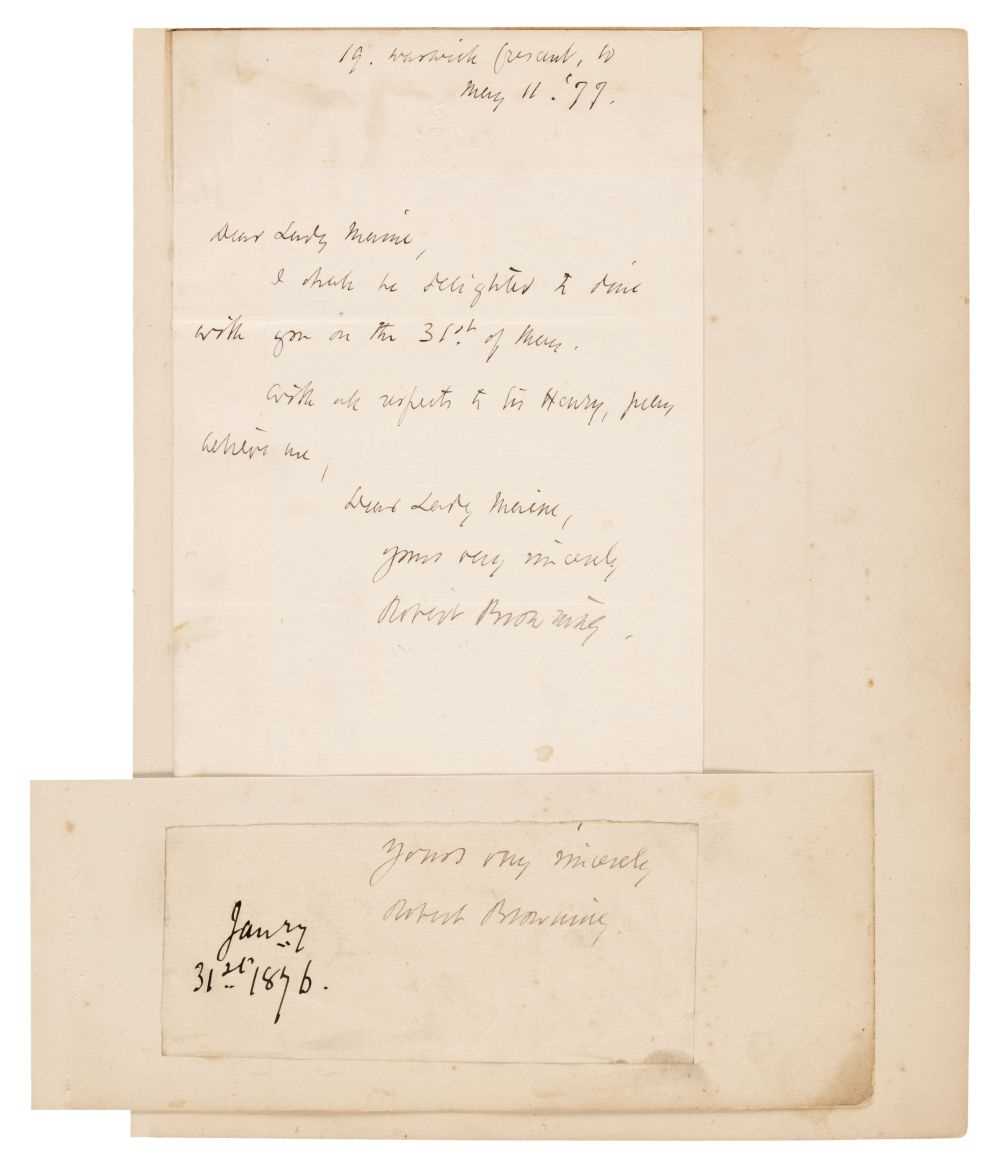 19. Warwick Crescent, W
May 11. '77.
Dear Lady Maine,
I shall be delighted to dine
with you on the 31st. of May.
With all respects to Sir Henry, pray
believe me,
Dear Lady Maine,
Yours very sincerely
Robert Browning.
Yours very sincerely
Robert Browning.
Janry
31st. 1876.